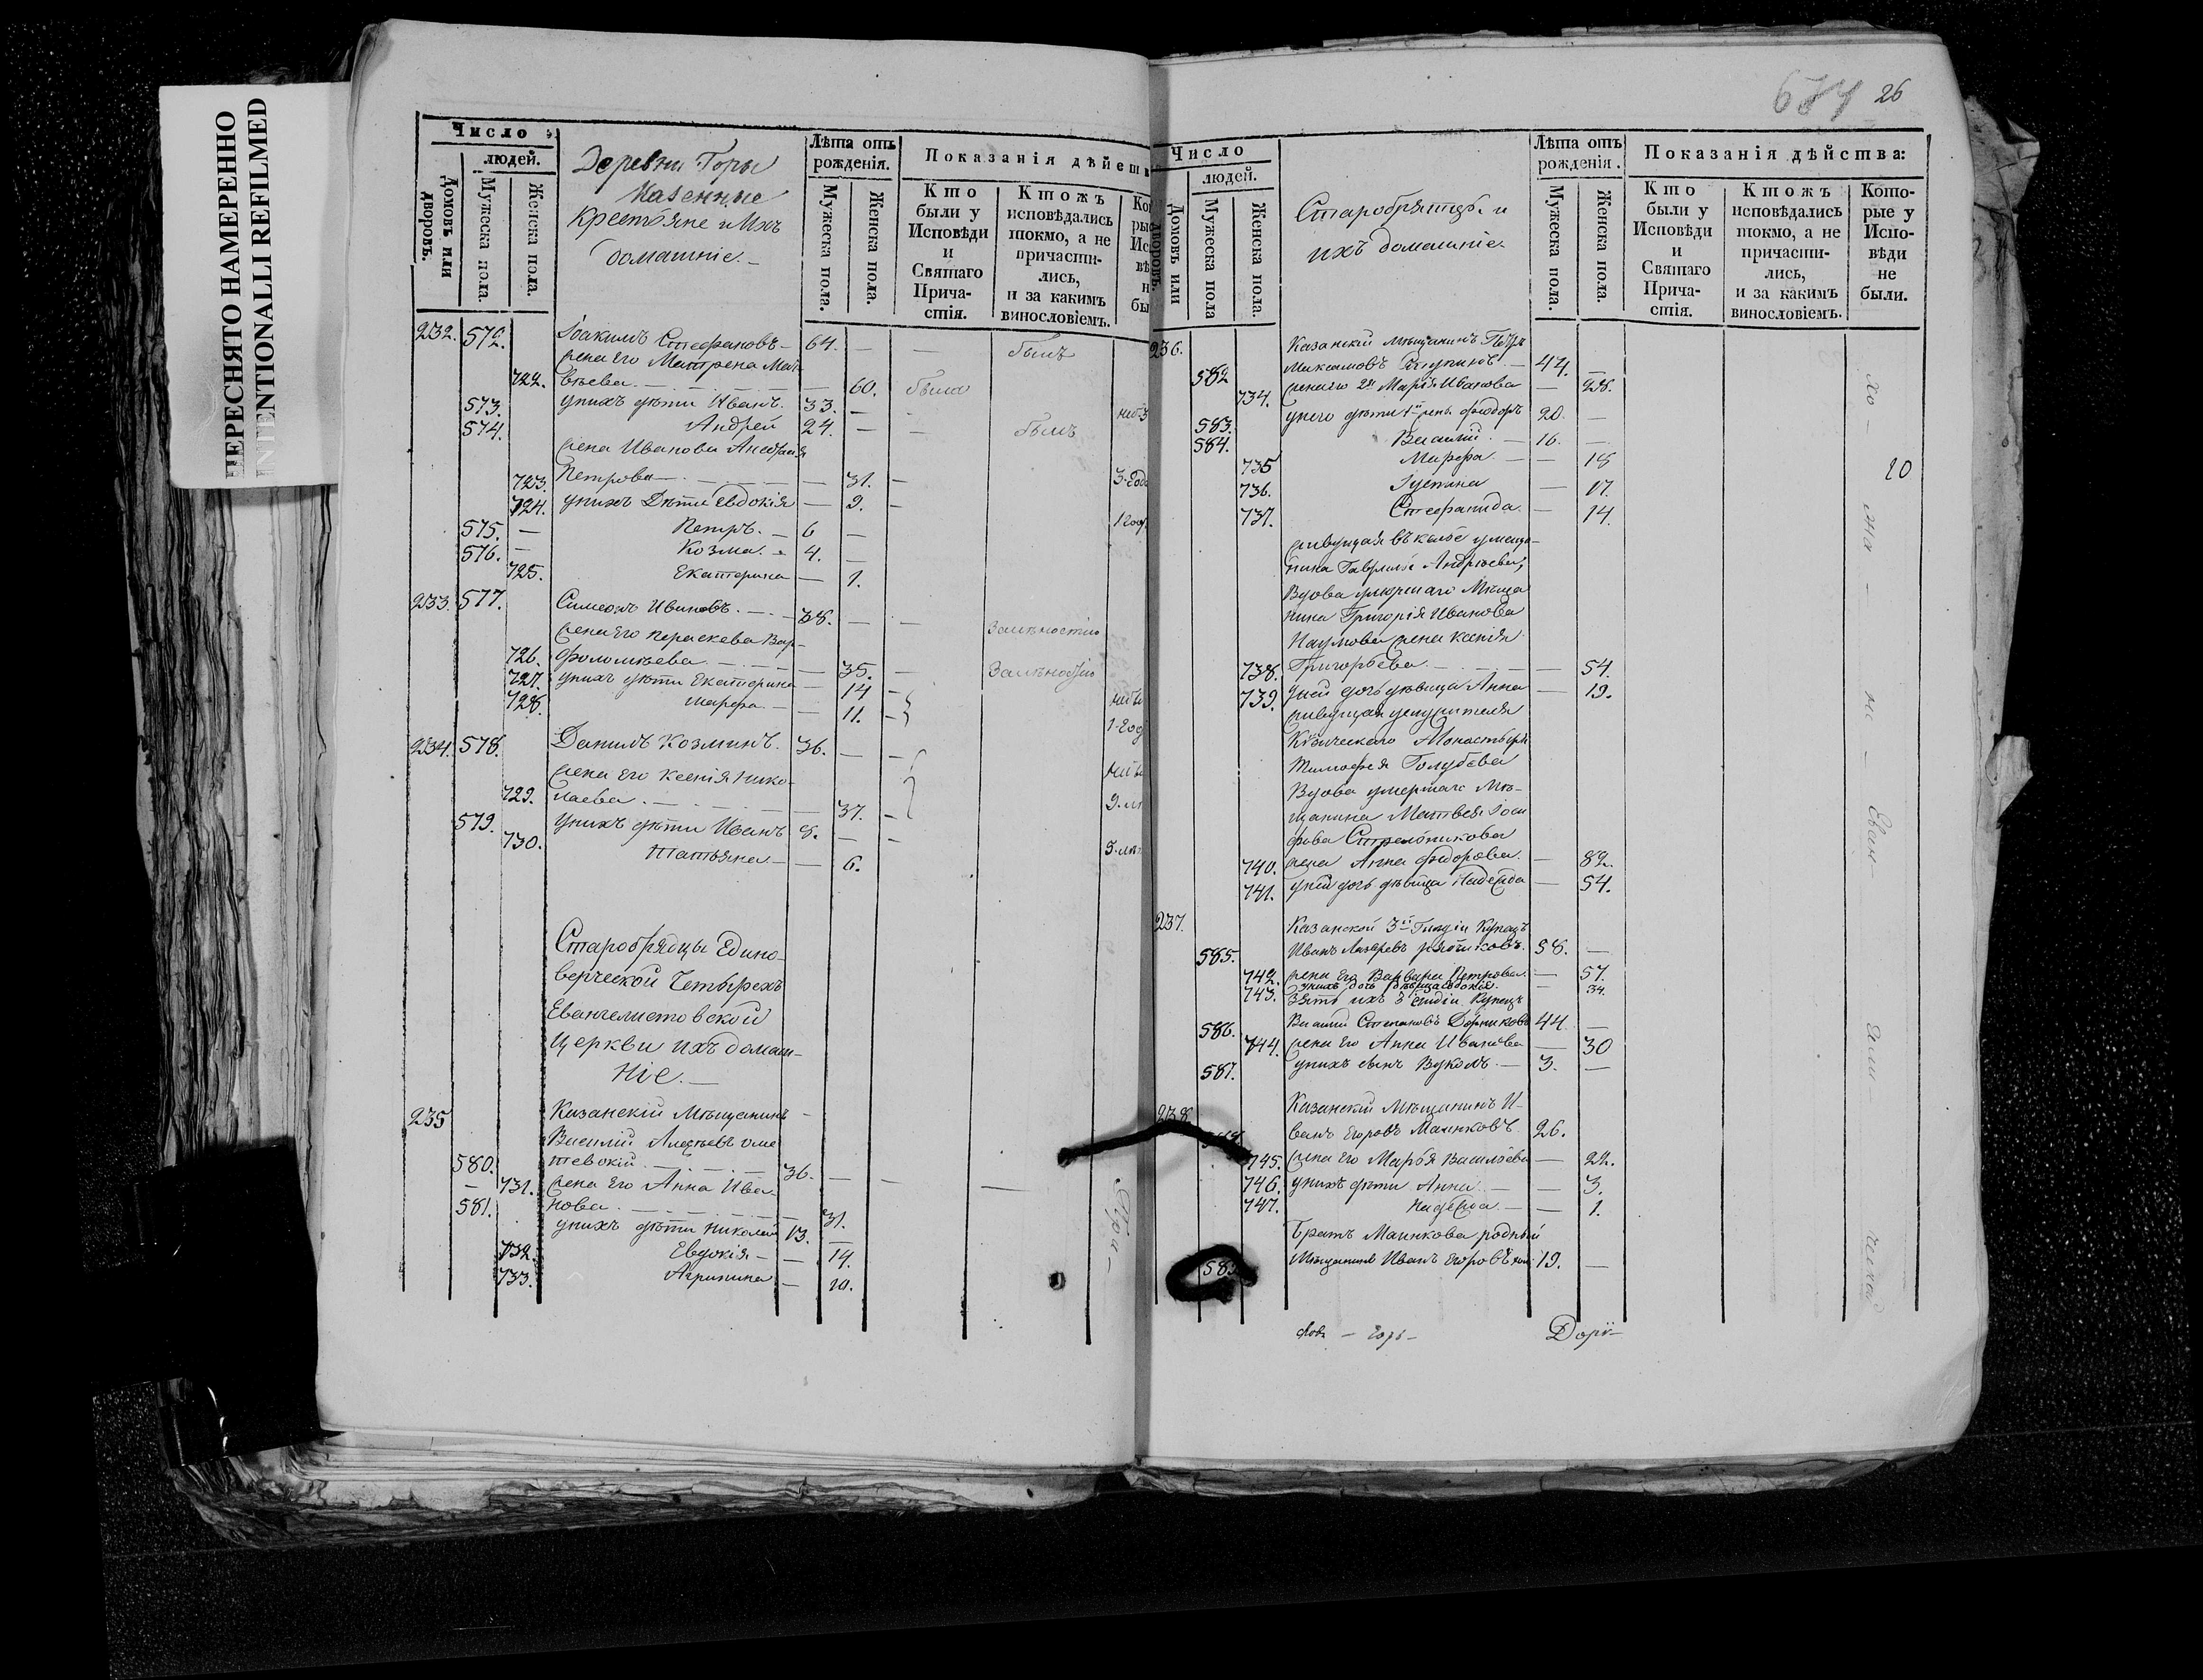 ПЕРЕСНЯТО НАМЕРЕННО
INTENTIONALLI REFILMED
Число
людей.
Домовъ или дворовъ.
Мужеска пола.
Женска пола.
Деревни Горы
Казенные
Крестьяне и Ихъ
домашніе.
Лѣта отъ рожденія.
Мужеска пола.
Женска пола.
Показанія дѣйств
Кто были у Исповѣди и Святаго Причастія.
Ктожъ исповѣдались токмо, а не причастились, и за какимъ винословіемъ.
232. 572. Іоакимъ Стефановъ — 64. — — былъ
жена его Матрена Мат
722. вѣева — 60. была
573. у нихъ дѣти Иванъ. 33. —
574. Андрей 24. — — былъ
жена Иванова Анефиса
723. Петрова — 31. —
724. у нихъ Дѣти Евдокія — 9. —
575. — Петръ. — 6 —
576. — Козма. 4. —
725. Екатерина — 1.
233. 577. Симеонъ Ивановъ. — 38. — —
жена Его Параскева Вар-
726. фоломѣева — 35. —
727. у нихъ дѣти Екатерина — 14 —
728. Марфа — — 11. —
234. 578. Данилъ Козминъ. 36. — —
жена Его Ксенія Нико-
729. лаева. — 37. —
579. у нихъ дѣти Иванъ 8. — —
730. Татьяна — — 6.
Старобрядцы Едино-
верческой Четырехъ
Евангелистовской
Церкви ихъ домаш-
ніе. —
235 Казанскій Мѣщанинъ
Василій
580. 36. — —
— 731. жена Его Анна Ива-
нова. — 31.
581. у нихъ дѣти Николай 13. —
732. Евдокія — — 14.
733. Агрипина — 10.
При —
674 26
Число
людей.
Домовъ или дворовъ.
Мужеска пола
Женска пола.
Старобрятцы и
ихъ домашніе.
Лѣта отъ рожденія.
Мужеска пола.
Женска пола.
Показанія дѣйства:
Кто были у Исповѣди и Святаго Причастія.
Ктожъ исповѣдались токмо, а не причастились, и за какимъ винословіемъ.
Которые у Исповѣди не были.
236. Казанскій мѣщанинъ Петръ
582 Максимовъ — 44. —
734. жена его 2я Марія Иванова — 28.
583. у него дѣти 1й жены Феодоръ 20. —
584. Василій. — 16. —
735 Марфа — — 18
736. Іустина — 17.
737. Стефанида — 14.
живущая въ кельѣ у меща-
нина Гавріила Андреева,
Вдова умершаго Мѣща
нина Григорія Иванова
Наумова жена Ксенія
738. Григорьева — — 54.
739. у ней дочь дѣвица Анна — 19.
живущая у служителя
Кизическаго Монастыря
Тимофея Голубева
Вдова умершаго Мѣ-
щанина Матвея Іоси
фова Стрельникова
740. жена Анна Федорова. — 82.
741. у ней дочь дѣвица Надежда — 54.
237. Казанской 3й Гилдіи Купецъ
585. Иванъ 58. —
742. жена Его Варвара Петрова. — 57.
743. у нихъ дочь дѣвица Евдокія. — 34.
Зять ихъ 3й гилдіи Купецъ
586. Василій Степановъ 44. —
744. жена Его Анна Иванова — 30
587. у нихъ сынъ Вуколъ. — 3. —
238 Казанскій Мѣщанинъ И-
ванъ Егоровъ Маинковъ 26.
745. жена Его Марья Васильева — 22.
746. у нихъ дѣти Анна — — 3.
747. Надежда — — 1.
Братъ Маинкова родный
Мѣщанинъ Иванъ Егоровъ 19. —
хо — 20 жа — не — Еван